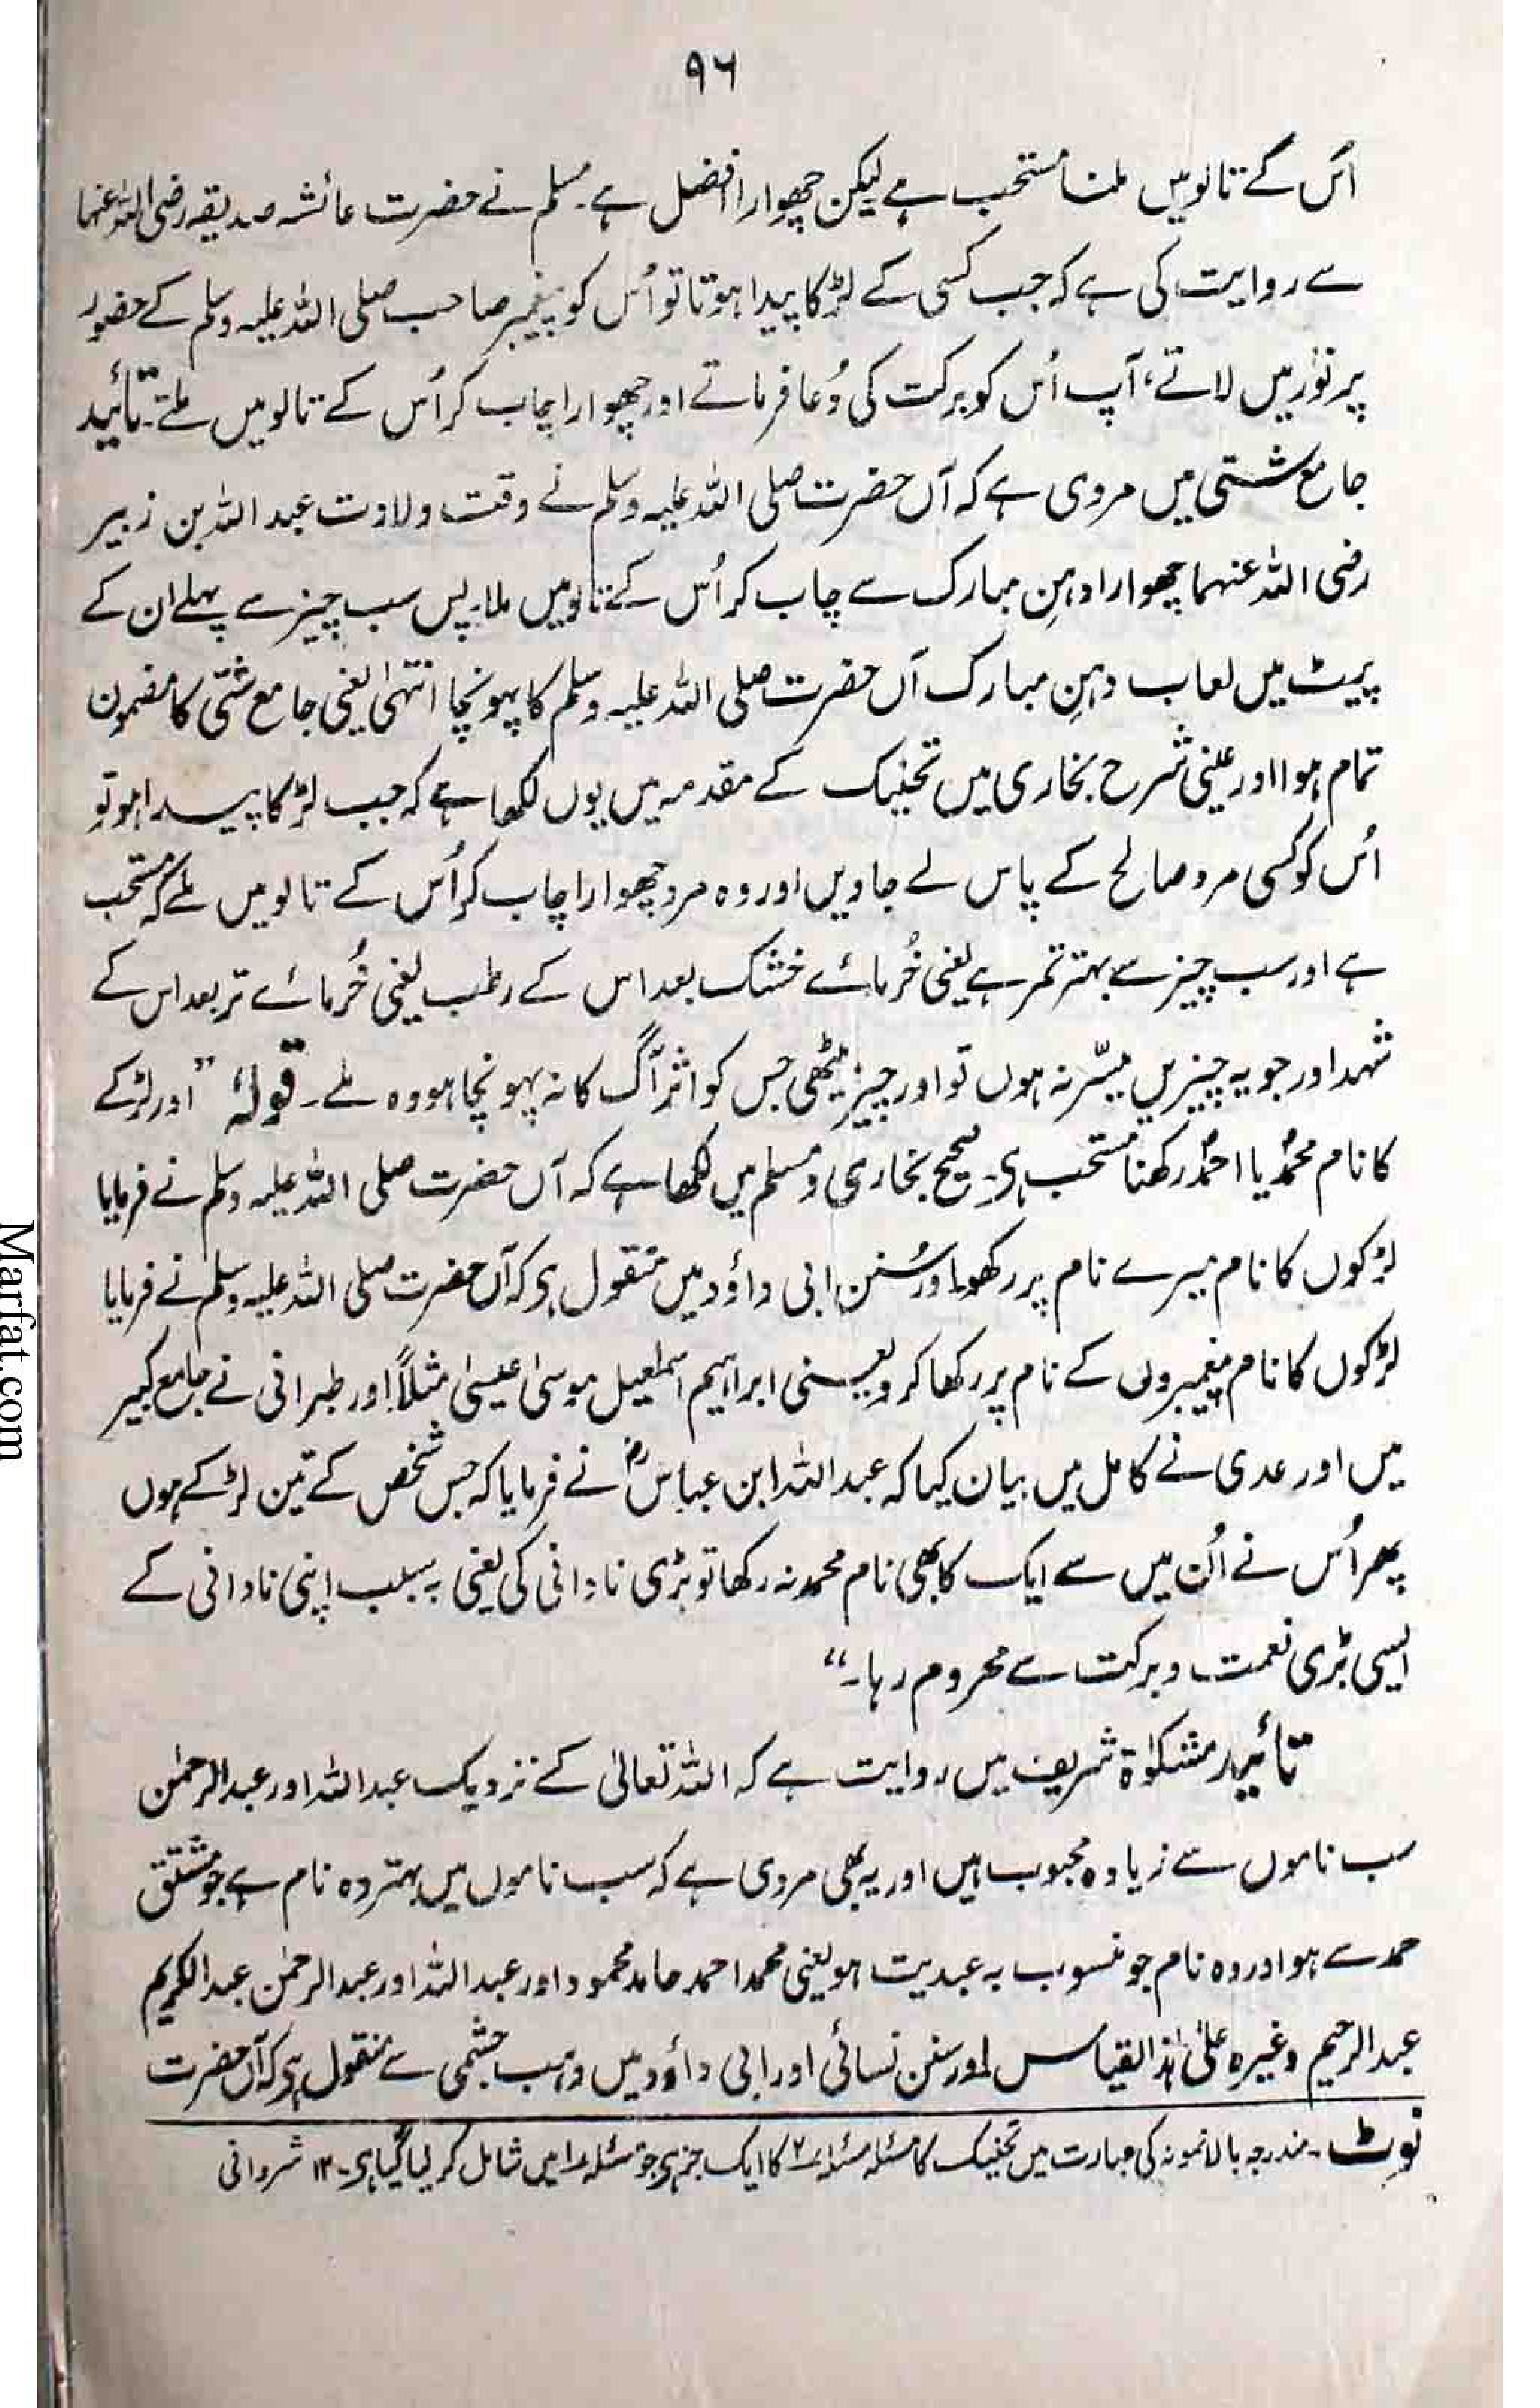 ۹۶
اُس کے تالو میں ملنا مستحب ہے لیکن چھوارا افضل ہے۔ مسلم نے حضرت عائشہ صدیقہ رضی اللہ عنہا
سے روایت کی ہے کہ جب کسی کے لڑکا پیدا ہوتا تو اُس کو پیغمبر صاحب صلی اللہ علیہ وسلم کے حضور
پر نور میں لاتے، آپ اُس کو برکت کی دُعا فرماتے اور چھوارا چاب کر اُس کے تالو میں ملتے۔ تائید
جامع شتی میں مروی ہے کہ آں حضرت صلی اللہ علیہ وسلم نے وقت ولادت عبد اللہ بن زبیر
رضی اللہ عنہما چھوارا دہنِ مبارک سے چاب کر اُس کے تالو میں ملا۔ پس سب چیز سے پہلے ان کے
پیٹ میں لعاب دہنِ مبارک آں حضرت صلی اللہ علیہ وسلم کا پہونچا انتہیٰ یعنی جامع شتّی کا مضمون
تمام ہوا اور عینی شرح بخاری میں تحنیک کے مقدمہ میں یوں لکھا ہے کہ جب لڑکا پیدا ہو تو
اُس کو کسی مرد صالح کے پاس لے جاویں اور وہ مرد چھوارا چاب کر اُس کے تالو میں ملے کہ مستحب
ہے اور سب چیز سے بہتر تمر ہے یعنی خُرمائے خشک بعد اس کے رطب یعنی خُرمائے تر بعد اس کے
شہد اور جو یہ چیزیں میسّر نہ ہوں تو اور چیز میٹھی جس کو اثر آگ کا نہ پہونچا ہو وہ ملے۔ قولہٗ "اور لڑکے
کا نام محمدؐ یا احمدؐ رکھنا مستحب ہی۔ صحیح بخاری و مسلم میں لکھا ہے کہ آں حضرت صلی اللہ علیہ وسلم نے فرمایا
لڑکوں کا نام میرے نام پر رکھو اور سُنن ابی داؤد میں منقول ہی کہ آں حضرت صلی اللہ علیہ وسلم نے فرمایا
لڑکوں کا نام پیغمبروں کے نام پر رکھا کرو یعنی ابراہیم اسمٰعیل موسیٰ عیسیٰ مثلاً اور طبرانی نے جامع کبیر
میں اور عدی نے کامل میں بیان کیا کہ عبد اللہ ابن عباسؓ نے فرمایا کہ جس شخص کے تین لڑکے ہوں
پھر اُس نے اُن میں سے ایک کا بھی نام محمد نہ رکھا تو بڑی نادانی کی یعنی بہ سبب اپنی نادانی کے
ایسی بڑی نعمت و برکت سے محروم رہا۔"
تائید مشکوٰۃ شریف میں روایت ہے کہ اللہ تعالیٰ کے نزدیک عبد اللہ اور عبد الرحمٰن
سب ناموں سے زیادہ محبوب ہیں اور یہ بھی مروی ہے کہ سب ناموں میں بہتر وہ نام ہے جو مشتق
حمد سے ہو اور وہ نام جو منسوب بہ عبدیت ہو یعنی محمد احمد حامد محمود اور عبد اللہ اور عبد الرحمٰن عبد الکریم
عبد الرحیم وغیرہ علیٰ ہٰذا القیاس اور سنن نسائی اور ابی داؤد میں وہب جشمی سے منقول ہی کہ آں حضرت
نوٹ۔ مندرجہ بالا نمونہ کی عبارت میں تحنیک کا مسئلہ مسئلہ ۲ کا ایک جز ہی جو مسئلہ ۱ میں شامل کر لیا گیا ہی۔ ۱۲ شروانی
Marfat.com